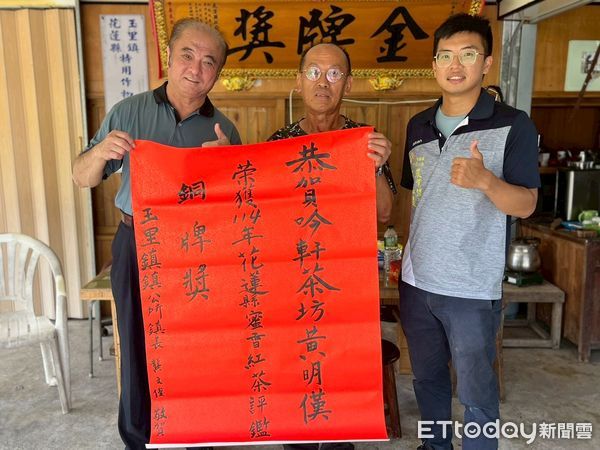 金牌獎
花蓮縣
玉里鎮特用作物
恭賀吟軒茶坊黃明僕
榮獲114年花蓮縣蜜香紅茶評鑑
銅牌獎
玉里鎮鎮公所鎮長龔文俊敬賀
ETtoday新聞雲